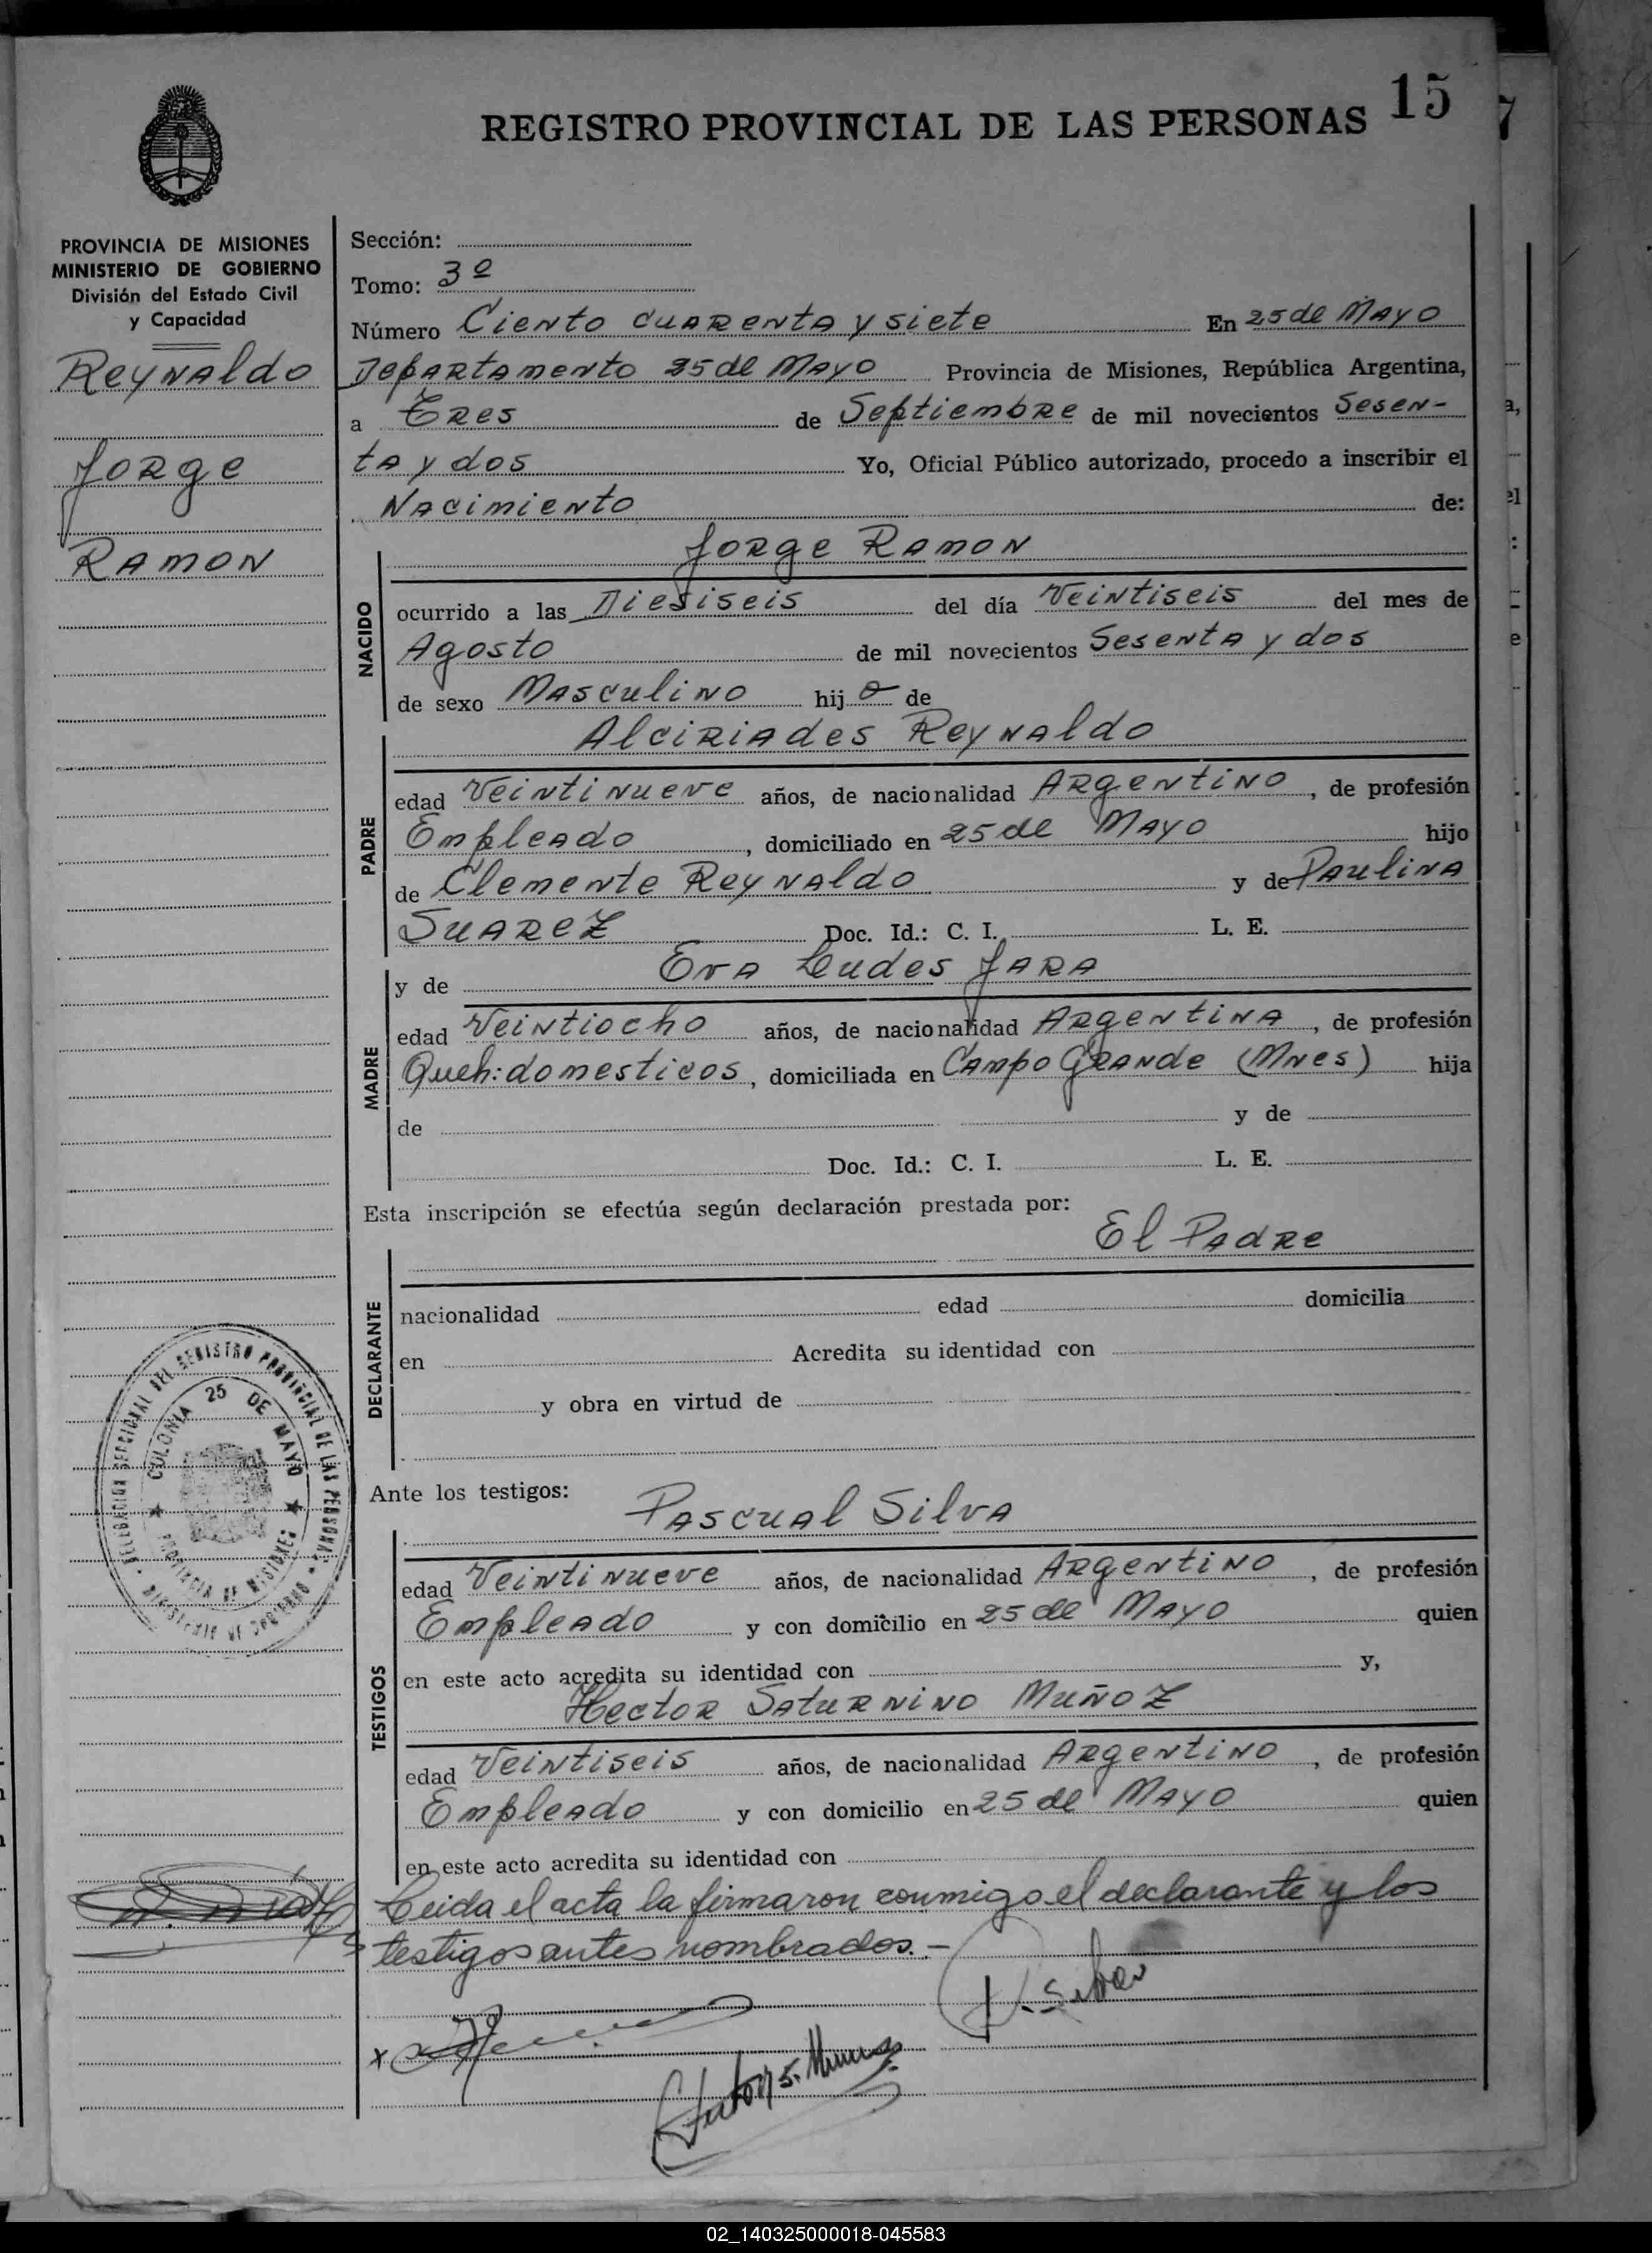 REGISTRO PROVINCIAL DE LAS PERSONAS 15
PROVINCIA DE MISIONES
MINISTERIO DE GOBIERNO
División del Estado Civil
y Capacidad
Reynaldo
Jorge
Ramon
Sección:
Tomo: 3º
Número Ciento cuarenta y siete En 25 de Mayo
Departamento 25 de Mayo Provincia de Misiones, República Argentina,
a Tres de Septiembre de mil novecientos Sesen-
ta y dos Yo, Oficial Público autorizado, procedo a inscribir el
Nacimiento de:
Jorge Ramon
NACIDO
ocurrido a las Diesiseis del día Veintiseis del mes de
Agosto de mil novecientos Sesenta y dos
de sexo Masculino hijo de
Alciriades Reynaldo
PADRE
edad Veintinueve años, de nacionalidad Argentino, de profesión
Empleado, domiciliado en 25 de Mayo hijo
de Clemente Reynaldo y de Paulina
Suarez Doc. Id.: C. I. L. E.
y de Eva Leudes Jara
MADRE
edad Veintiocho años, de nacionalidad Argentina, de profesión
Queh: domesticos, domiciliada en Campo Grande (Mnes) hija
de y de
Doc. Id.: C. I. L. E.
Esta inscripción se efectúa según declaración prestada por:
El Padre
DECLARANTE
nacionalidad edad domicilia
en Acredita su identidad con
y obra en virtud de
DELEGACION SECCIONAL DEL REGISTRO PROVINCIAL DE LAS PERSONAS
MINISTERIO DE GOBIERNO
COLONIA 25 DE MAYO
PROVINCIA DE MISIONES
Ante los testigos:
Pascual Silva
TESTIGOS
edad Veintinueve años, de nacionalidad Argentino, de profesión
Empleado y con domicilio en 25 de Mayo quien
en este acto acredita su identidad con y,
Hector Saturnino Muñoz
edad Veintiseis años, de nacionalidad Argentino, de profesión
Empleado y con domicilio en 25 de Mayo quien
en este acto acredita su identidad con
Leida el acta la firmaron conmigo el declarante y los
testigos antes nombrados.-
02_140325000018-045583